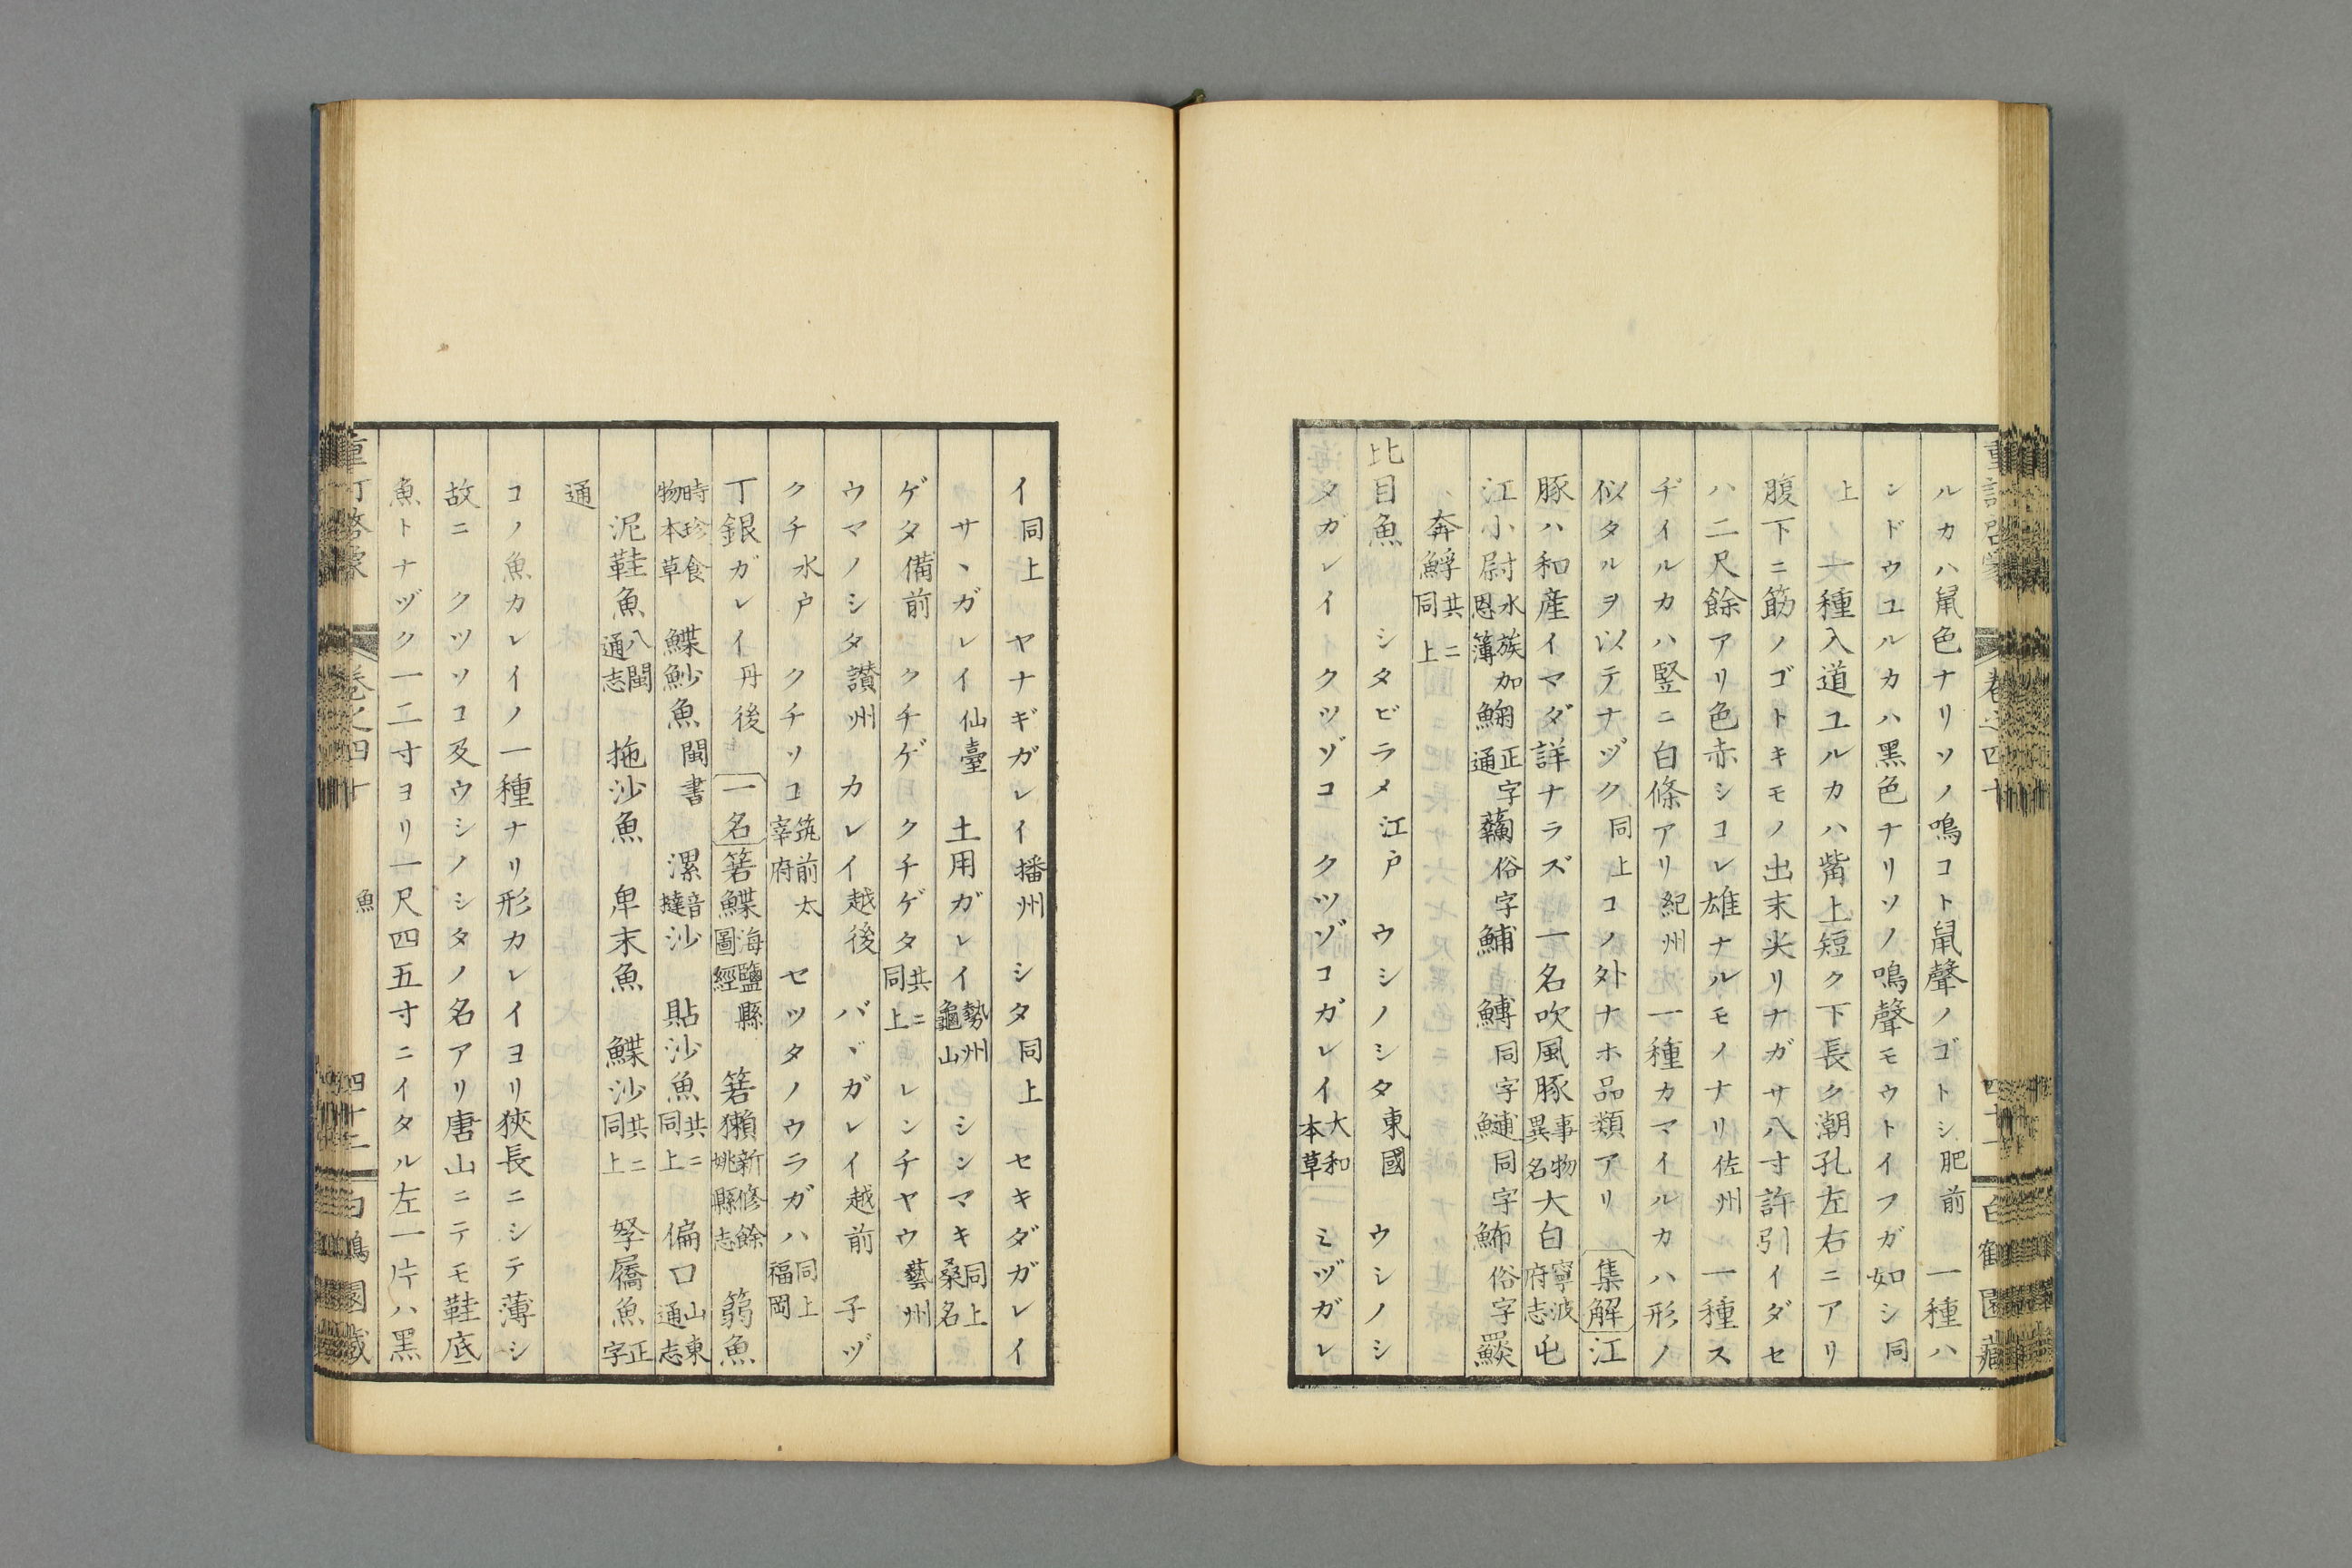 ルカハ鼠色ナリソノ鳴コト鼠聲ノゴトシ肥前 一種ハ
シドウユルカハ黑色ナリソノ鳴聲モウトイフガ如シ同
上 一種入道ユルカハ觜上短ク下長ク潮孔左右ニアリ
腹下ニ筋ノゴトキモノ出末尖リナガサ八寸許引イダセ
ハ二尺餘アリ色赤シコレ雄ナルモイナリ佐州 一種ス
ヂイルカハ竪ニ白條アリ紀州 一種カマイルカハ形ノ
似タルヲ以テナヅク同上コノ外ナホ品類アリ 集解 江
豚ハ和産イマダ詳ナラズ 一名吹風豚事物異名 大白寧波府志 屯
江小尉水族加恩簿 鮈正字通 俗字 鯆 鱄同字 同字 䰽俗字
奔䱐共ニ同上
比目魚 シタビラメ江戸 ウシノシタ東國 ウシノシ
タガレイ クツゾコ クツゾコガレイ大和本草 ミヅガレ
イ同上 ヤナギガレイ播州 シタ同上 セキダガレイ
サヽガレイ仙臺 土用ガレイ勢州龜山 シンマキ同上桑名
ゲタ備前 クチゲ クチゲタ共ニ同上 レンチヤウ藝州
ウマノシタ讃州 カレイ越後 バヾガレイ越前 子ヅ
クチ水戸 クチソコ筑前太宰府 セツタノウラガハ同上福岡
丁銀ガレイ丹後 一名 箬鰈海鹽縣圖經 箬獺新修餘姚縣志 篛魚
時珍食物本草 鰈魦魚閩書 漯音撻沙 貼沙魚共ニ同上 偏口山東通志
泥鞋魚八閩通志 拖沙魚 卑末魚 鰈沙共ニ同上 拏屩魚正字
通
コノ魚カレイノ一種ナリ形カレイヨリ狹長ニシテ薄シ
故ニ クツソコ及ウシノシタノ名アリ唐山ニテモ鞋底
魚トナヅク一二寸ヨリ一尺四五寸ニイタル左一片ハ黑
魚